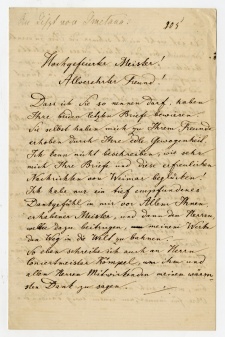 205
Hochgefeierter Meister!
Allverehrter Freund!
Dass ich Sie so nennen darf, haben
Ihre beiden letzten Briefe bewiesen
Sie selbst haben mich zu Ihrem Freunde
erhoben durch Ihre edle Gewogenheit.
Ich kann nicht beschreiben, wie sehr
mich Ihre Briefe und die erfreulichen
Nachrichten von Weimar beglückten!
Ich habe nur ein tief empfundenes
Dankgefühl in mir vor Allem Ihnen
erhabener Meister, und dann den Herren,
welche dazu beitrugen, – meinem Werke
den Weg in die Welt zu bahnen. –
So eben schreibe ich auch an Herrn
Concertmeister Kömpel, um ihm und
allen Herren Mitwirkenden meinen wärm-
sten Dank zu sagen. –